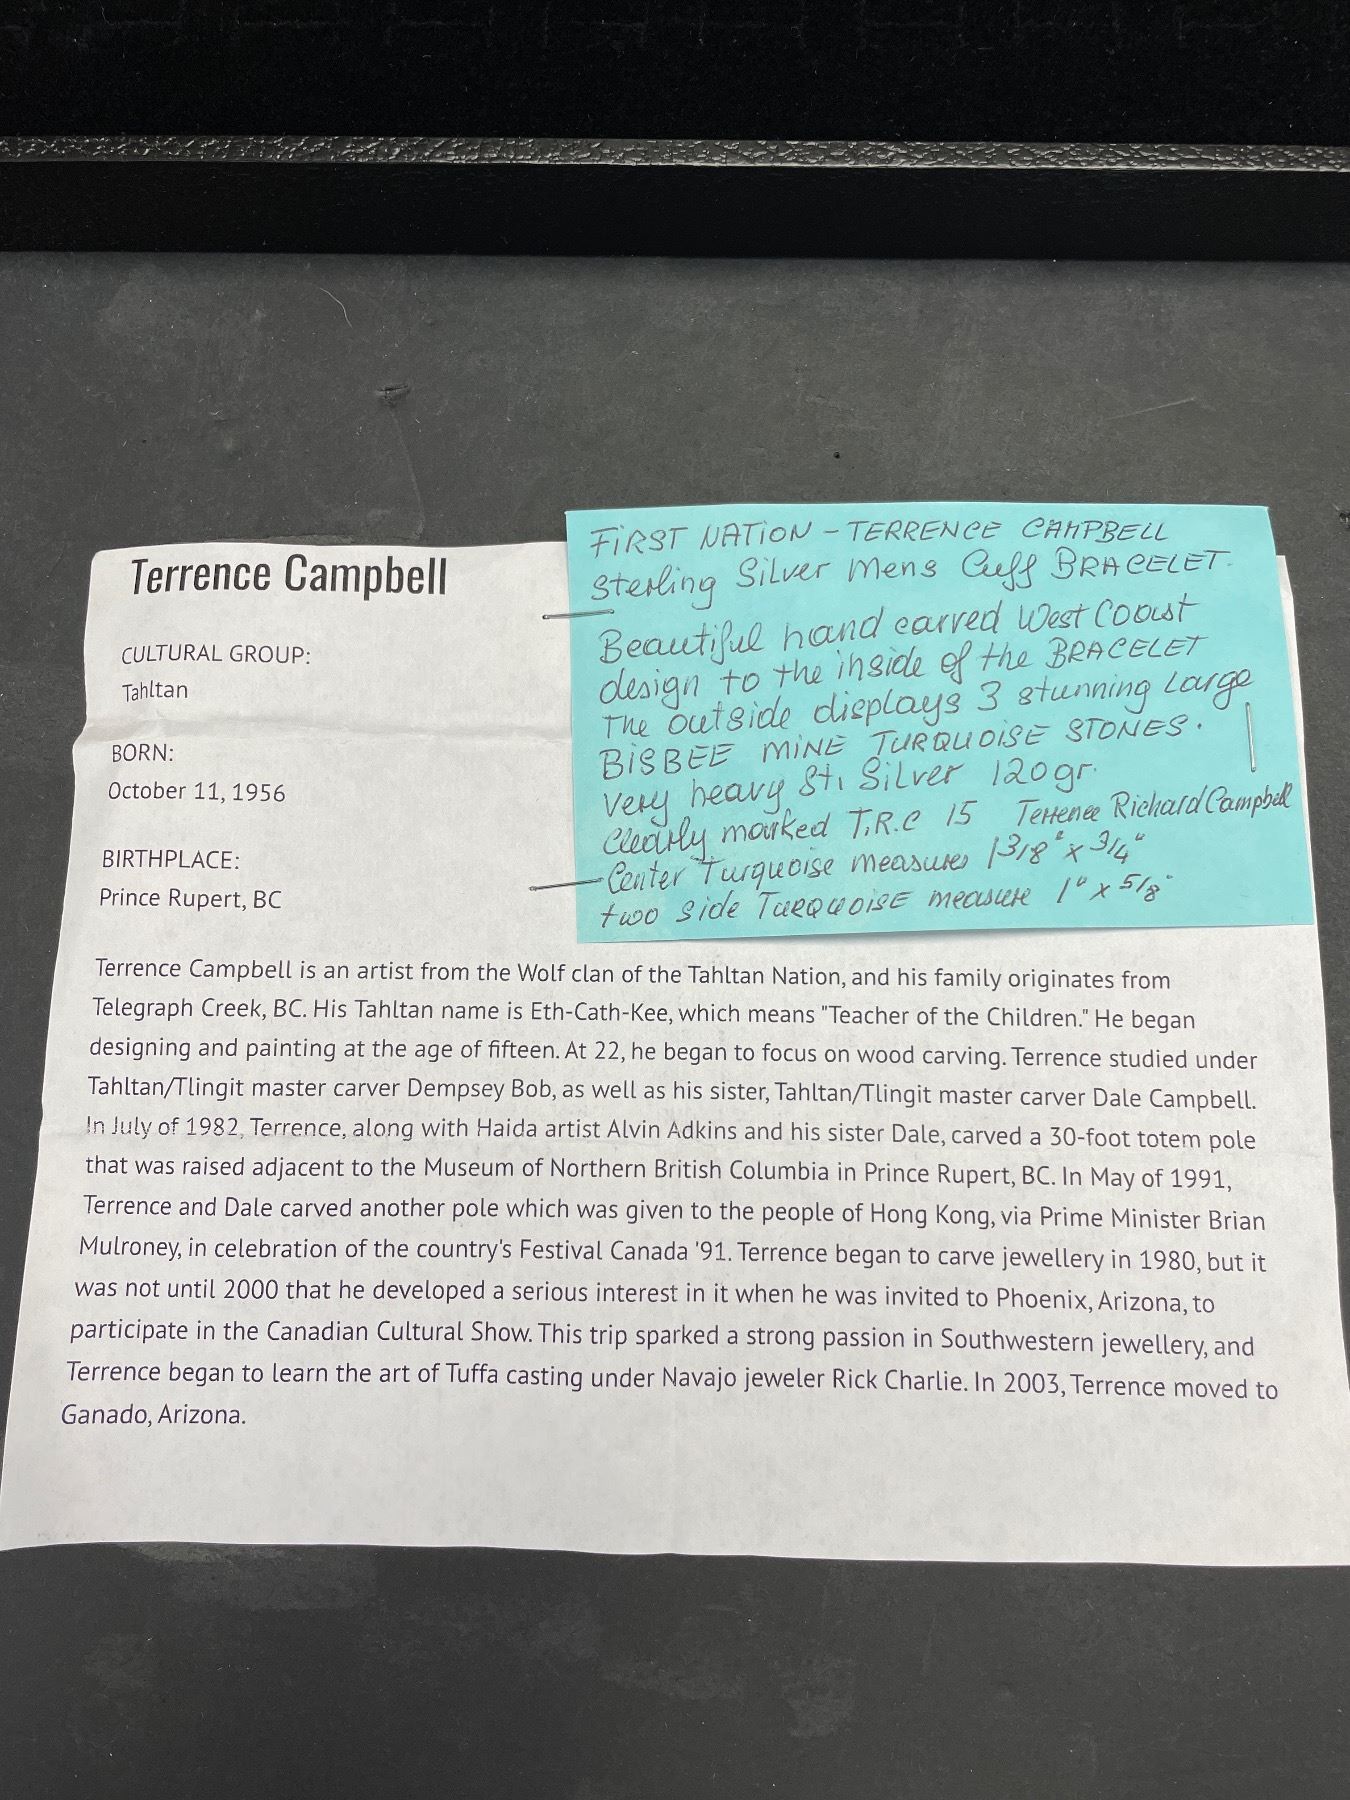 FIRST NATION - TERRENCE CAMPBELL
Sterling Silver Mens Cuff BRACELET.
Beautiful hand carved West Coast
design to the inside of the BRACELET
The outside displays 3 stunning Large
BISBEE MINE TURQUOISE STONES.
very heavy St. Silver 120gr.
Clearly marked T.R.C 15 Terrence Richard Campbell
Center Turquoise measures 1 3/8" x 3/4"
two side TURQUOISE measure 1" x 5/8"
Terrence Campbell
CULTURAL GROUP:
Tahltan
BORN:
October 11, 1956
BIRTHPLACE:
Prince Rupert, BC
Terrence Campbell is an artist from the Wolf clan of the Tahltan Nation, and his family originates from
Telegraph Creek, BC. His Tahltan name is Eth-Cath-Kee, which means "Teacher of the Children." He began
designing and painting at the age of fifteen. At 22, he began to focus on wood carving. Terrence studied under
Tahltan/Tlingit master carver Dempsey Bob, as well as his sister, Tahltan/Tlingit master carver Dale Campbell.
In July of 1982, Terrence, along with Haida artist Alvin Adkins and his sister Dale, carved a 30-foot totem pole
that was raised adjacent to the Museum of Northern British Columbia in Prince Rupert, BC. In May of 1991,
Terrence and Dale carved another pole which was given to the people of Hong Kong, via Prime Minister Brian
Mulroney, in celebration of the country's Festival Canada '91. Terrence began to carve jewellery in 1980, but it
was not until 2000 that he developed a serious interest in it when he was invited to Phoenix, Arizona, to
participate in the Canadian Cultural Show. This trip sparked a strong passion in Southwestern jewellery, and
Terrence began to learn the art of Tuffa casting under Navajo jeweler Rick Charlie. In 2003, Terrence moved to
Ganado, Arizona.